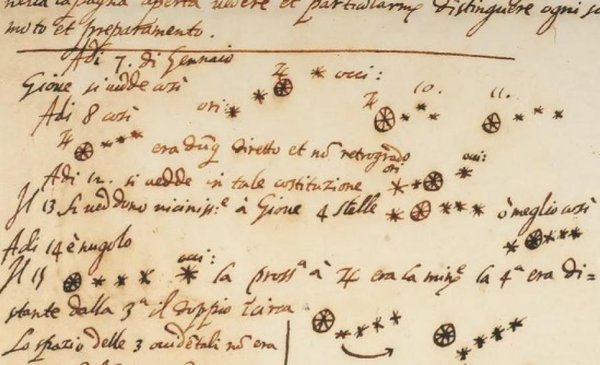 nella pagna aperta vedere et particularmẽ distinguere ogni so
moto et preparamento.
Adi 7. di Gennaio
Gione si vedde così ori: ♃ occi: 10. 11.
Adi 8 così ♃
♃ era dũq diretto et nõ retrogrado
Adi 12. si vedde in tale costituzione ori occi:
Il 13 si veddono viciniss.e à Gione 4 stelle ò meglio così
Adi 14 è nugolo
Il 15 occi: la pross.a à ♃ era la min.e la 4.a era di=
stante dalla 3.a il doppio ĩcirca
Lo spazio delle 3 ocidẽtali nõ era